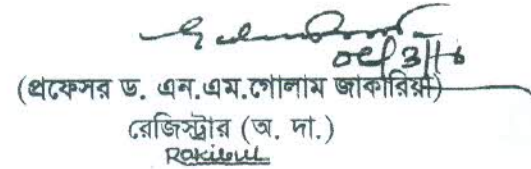 (প্রফেসর ড. এন.এম.গোলাম জাকারিয়া)
রেজিস্ট্রার (অ. দা.)
Rakibul